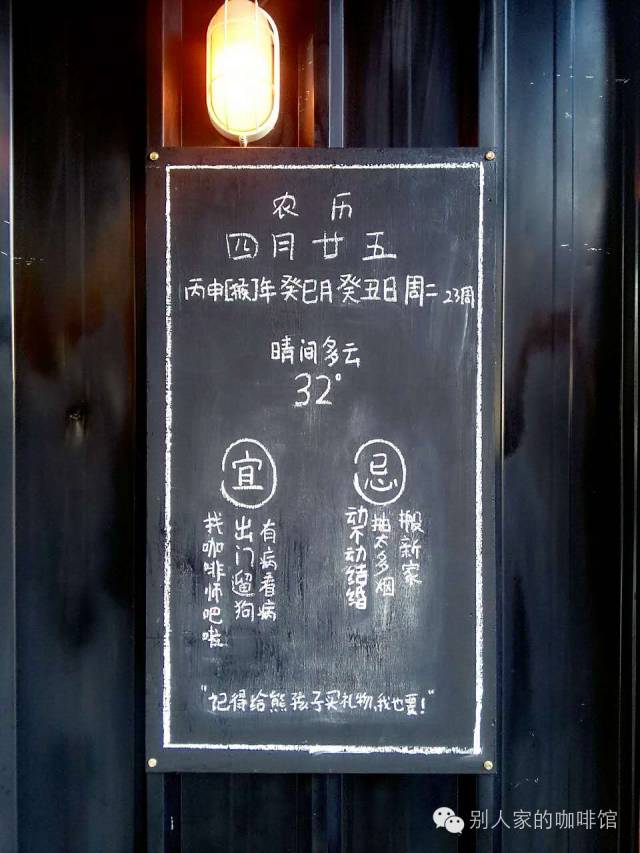 农 历
四月廿五
丙申[猴]年 癸巳月 癸丑日 周二 23周
晴间多云
32°
宜
有病看病
出门遛狗
找咖啡师吧啦
忌
搬新家
抽太多烟
动不动结婚
"记得给熊孩子买礼物,我也要!"
别人家的咖啡馆